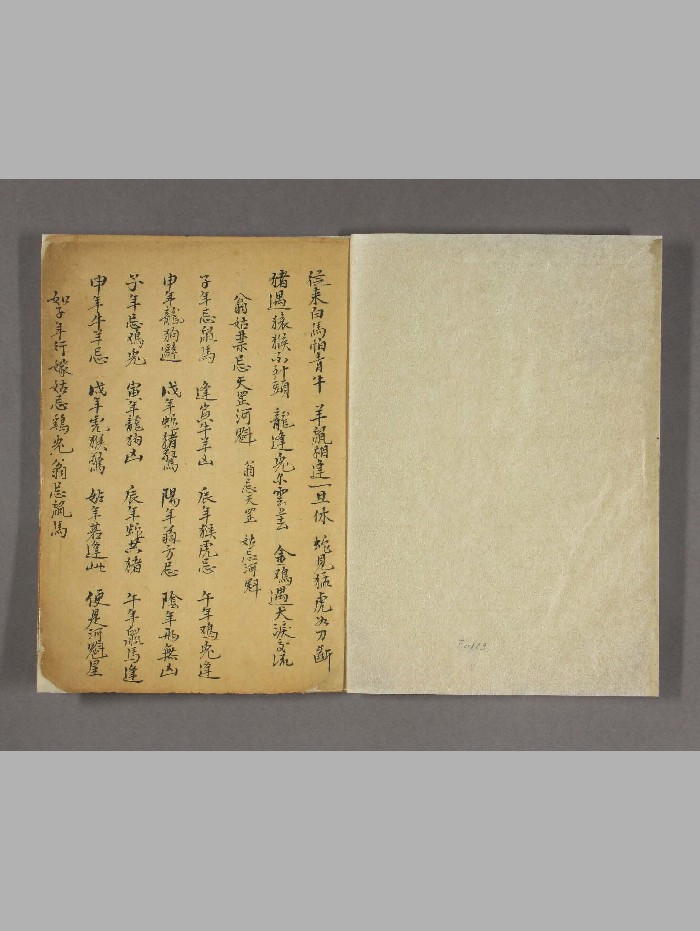 從來白馬怕青牛 羊鼠相逢一旦休 蛇見猛虎如刀斷
猪遇猿猴不到頭 龍逢兔 雲 金鳮遇犬淚交流
翁姑禁忌天罡河魁 翁忌天罡 姑忌河魁
子年忌鼠馬 逢寅牛羊凶 辰年猴虎忌 午年鳮兔逢
申年龍狗避 戌年蛇猪驚 陽年翁方忌 陰年 無凶
子年忌鳮兔 寅年龍狗凶 辰年蛇共猪 午年鼠馬逢
申年牛羊忌 戌年虎猴驚 姑年若逢此 便是河魁星
如子年行嫁姑忌鷄兔翁忌鼠馬